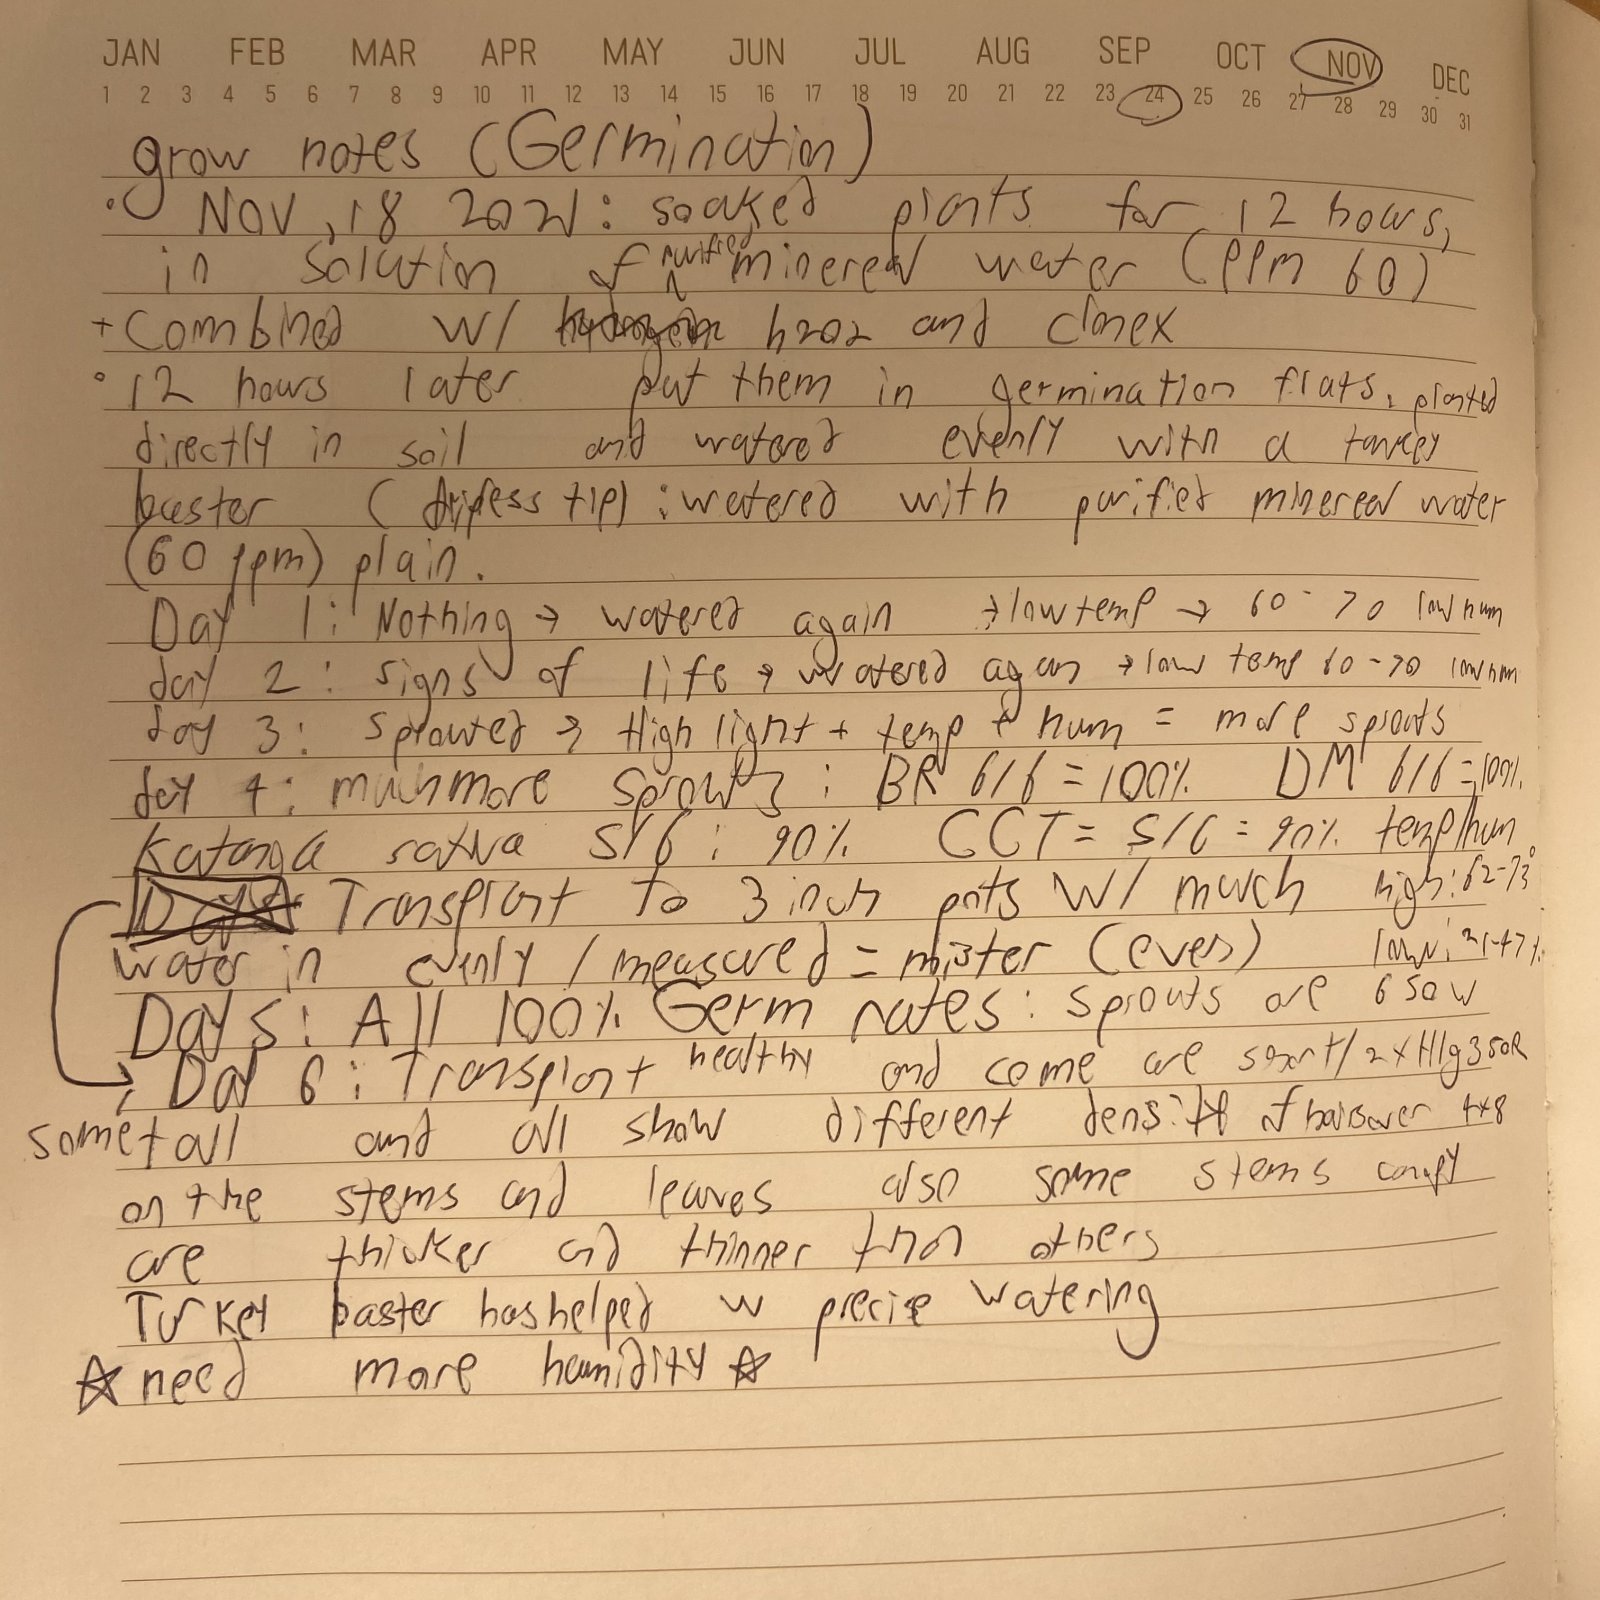 JAN FEB MAR APR MAY JUN JUL AUG SEP OCT NOV DEC
1 2 3 4 5 6 7 8 9 10 11 12 13 14 15 16 17 18 19 20 21 22 23 24 25 26 27 28 29 30 31
grow notes (Germination)
• Nov, 18 2021: soaked plants for 12 hours,
in solution of purified minereal water (PPM 60)
+ Combined w/ h2o2 and clonex
• 12 hours later put them in germination flats, planted
directly in soil and watered evenly with a turkey
baster (tip): watered with purified minereal water
(60 ppm) plain.
Day 1: Nothing → watered again → low temp → 60-70 low hum
day 2: signs of life → watered again → low temp 60-70 low hum
day 3: sprouted → High light + temp + hum = more sprouts
day 4: much more sprouts: BR 6/6 = 100% DM 6/6 = 100%
Katanga sativa 5/6: 90% CCT = 5/6 = 90% temp/hum
Transplant to 3 inch pots w/ much high: 62-73°
water in evenly / measured = mister (eves) low: 21-47%
Day 5: All 100% Germ rates: sprouts are 650w
Day 6: Transplant healthy and come are short / 2x Hlg350R
some tall and all show different density of hairs over 4x8
on the stems and leaves also some stems canopy
are thicker and thinner than others
Turkey baster has helped w precise watering
☆ need more humidity ☆